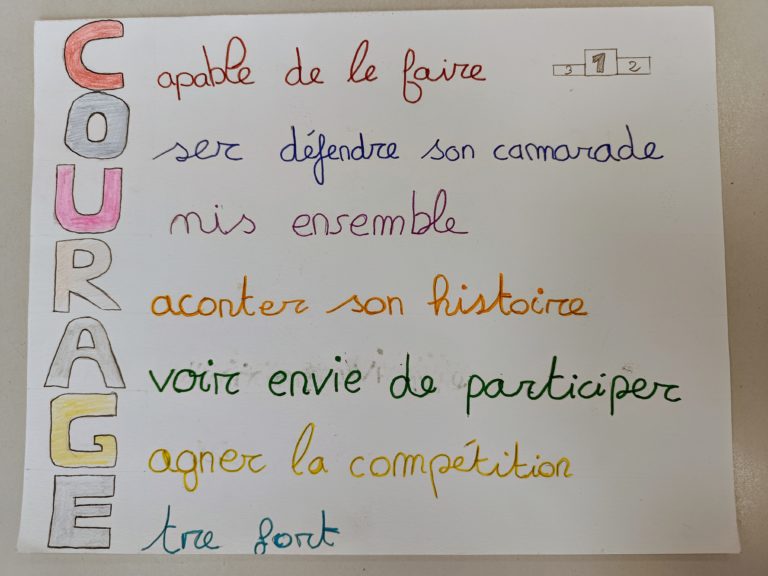 Capable de le faire
3 1 2
Oser défendre son camarade
Unis ensemble
Raconter son histoire
Avoir envie de participer
Gagner la compétition
Etre fort